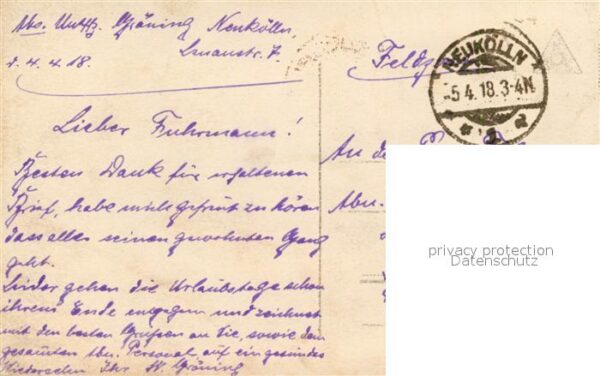 Abs. Uuffz. Gröning Neukölln,
Lenaustr. 7
d. 4.4.18.
Feldpost
NEUKÖLLN
-5.4.18.3-4N.
Lieber Fuhrmann!
An
Besten Dank für erhaltenen
Brief, habe mich gefreut zu hören
dass alles seinen gewohnten Gang
geht.
Leider gehen die Urlaubstage schon
ihrem Ende entgegen und zeichnet
mit den besten Grüßen an Sie, sowie dem
gesamten Abn. Personal, auf ein gesundes
Wiedersehn Ihr W. Gröning
Abn.
privacy protection
Datenschutz